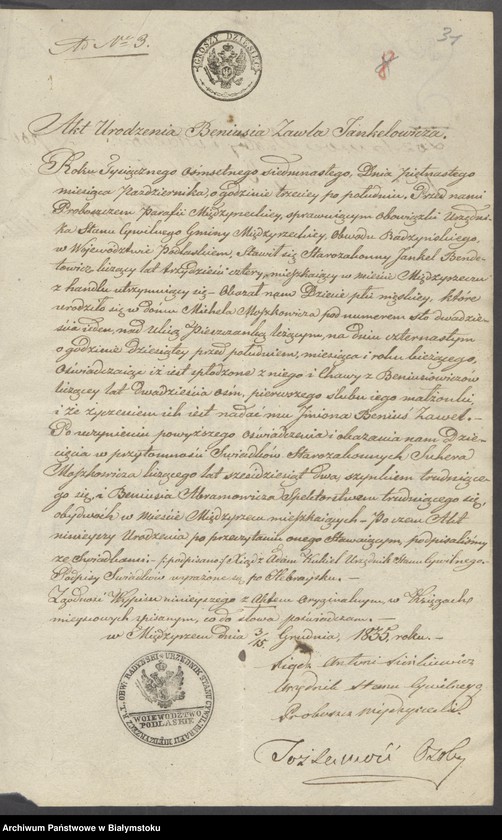 Ad Nro 3.
31
8
GROSZY DZIESIĘĆ
Akt Urodzenia Beniusia Zawla Jankelowicza.
Roku Tysiącznego Osmsetnego siedmnastego, Dnia piętnastego
miesiąca Pazdziernika, o godzinie trzeciey po południu. Przed nami
Proboszczem Parafii Międzyrzeckiey, sprawuiącym Obowiązki Urzędni-
ka Stanu Cywilnego Gminy Międzyrzeckiey, Obwodu Radzynskiego,
w Woiewodztwie Podlaskiem, Stawił się Starozakonny Jankel Bend-
towicz liczący lat trzydzieści cztery, mieszkaiący w mieście Międzyrzecu
z handlu utrzymuiący się – Okazał nam Dziecie płci męzkiey, które
urodziło się w domu Michela Moszkowicza pod numerem sto dwadzie-
ścia ieden, nad Ulicą Piszczanką leżącym, na dniu czternastym
o godzinie dziesiątey przed południem, miesiąca i roku bieżącego,
Oświadczaiąc iż iest spłodzone z niego i Chawy z Beniuniowiczów
liczącey lat dwadzieścia ośm, pierwszego ślubu iego małżonki,
i że życzeniem ich iest nadać mu Jmiona Beniuś Zawel. –
Po uczynieniu powyższego oświadczenia i okazania nam Dzie-
cięcia w przytomności Świadków Starozakonnych Juhera
Moszkowicza liczącego lat sześćdziesiąt dwa, szynkiem trudniące-
go się, i Beniusia Abramowicza Spektorstwem trudniącego się,
obydwóch w mieście Międzyrzecu mieszkaiących – Poczem Akt
ninieyszy Urodzenia po przeczytaniu onego Stawaiącym, podpisaliśmy
ze Świadkami – podpisano Xiądz Adam Kukiel Urzędnik Stanu Cywilnego.
Podpisy Świadków wyrażone są po Hebraysku. –
Zgodność Wypisu ninieyszego z Aktem oryginalnym, w Księgach
mieyscowych zpisanym, co do słowa poświadczam. –
w Międzyrzecu dnia 3/15 Grudnia, 1835, roku. –
Antoni Sienkiewicz
Urzędnik Stanu Cywilnego
Proboszcz międzyrzecki
URZĘDNIK STANU CYWIL: PARAFII MIĘDZYRZEC
OBW: RADYNSKI
WOIEWÓDZTWO
PODLASKIE
Tożsamość Osoby
Archiwum Państwowe w Białymstoku